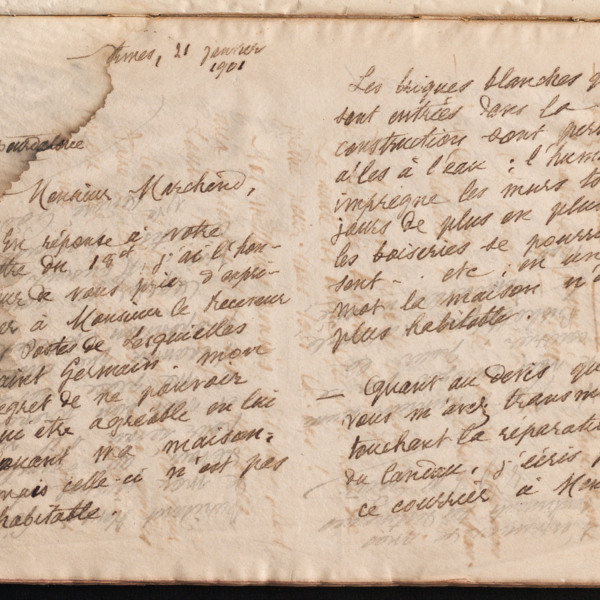 Nîmes, 21 janvier
1901
Bourdaloue
Monsieur Marchand,
En réponse à votre
ttre du 18 ct, j'ai l'hon-
eur de vous prier d'expri-
er à Monsieur le Receveur
Postes de Lesquielles
aint Germain mon
egret de ne pouvoir
lui être agréable en lui
ouant ma maison.
mais celle-ci n'est pas
habitable.
Les briques blanches q
sont entrées dans la
construction sont permé
ables à l'eau ; l'humi
imprègne les murs to
jours de plus en plus
les boiseries se pourri
sent - . etc ; en un
mot la maison n'e
plus habitable.
— Quant au devis qu
vous m'avez transm
touchant la réparati
du landau, j'écris p
ce courrier à Mon